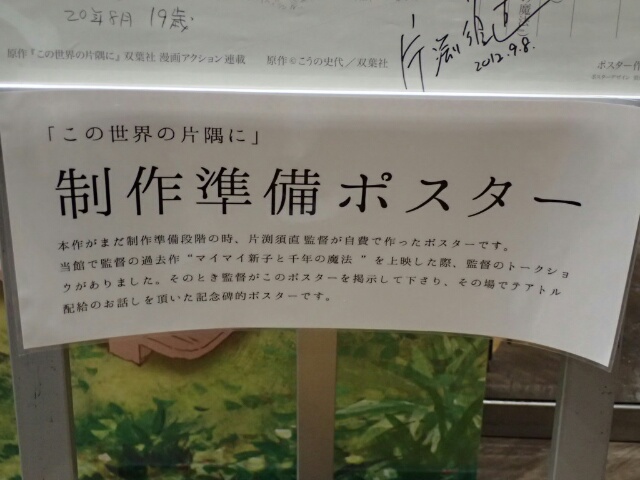 20年8月 19歳
原作『この世界の片隅に』双葉社 漫画アクション連載 原作©こうの史代／双葉社
片渕須直
2012.9.8.
ポスター
「この世界の片隅に」
制作準備ポスター
本作がまだ制作準備段階の時、片渕須直監督が自費で作ったポスターです。
当館で監督の過去作“マイマイ新子と千年の魔法 ”を上映した際、監督のトークショ
ウがありました。そのとき監督がこのポスターを掲示して下さり、その場でテアトル
配給のお話しを頂いた記念碑的ポスターです。